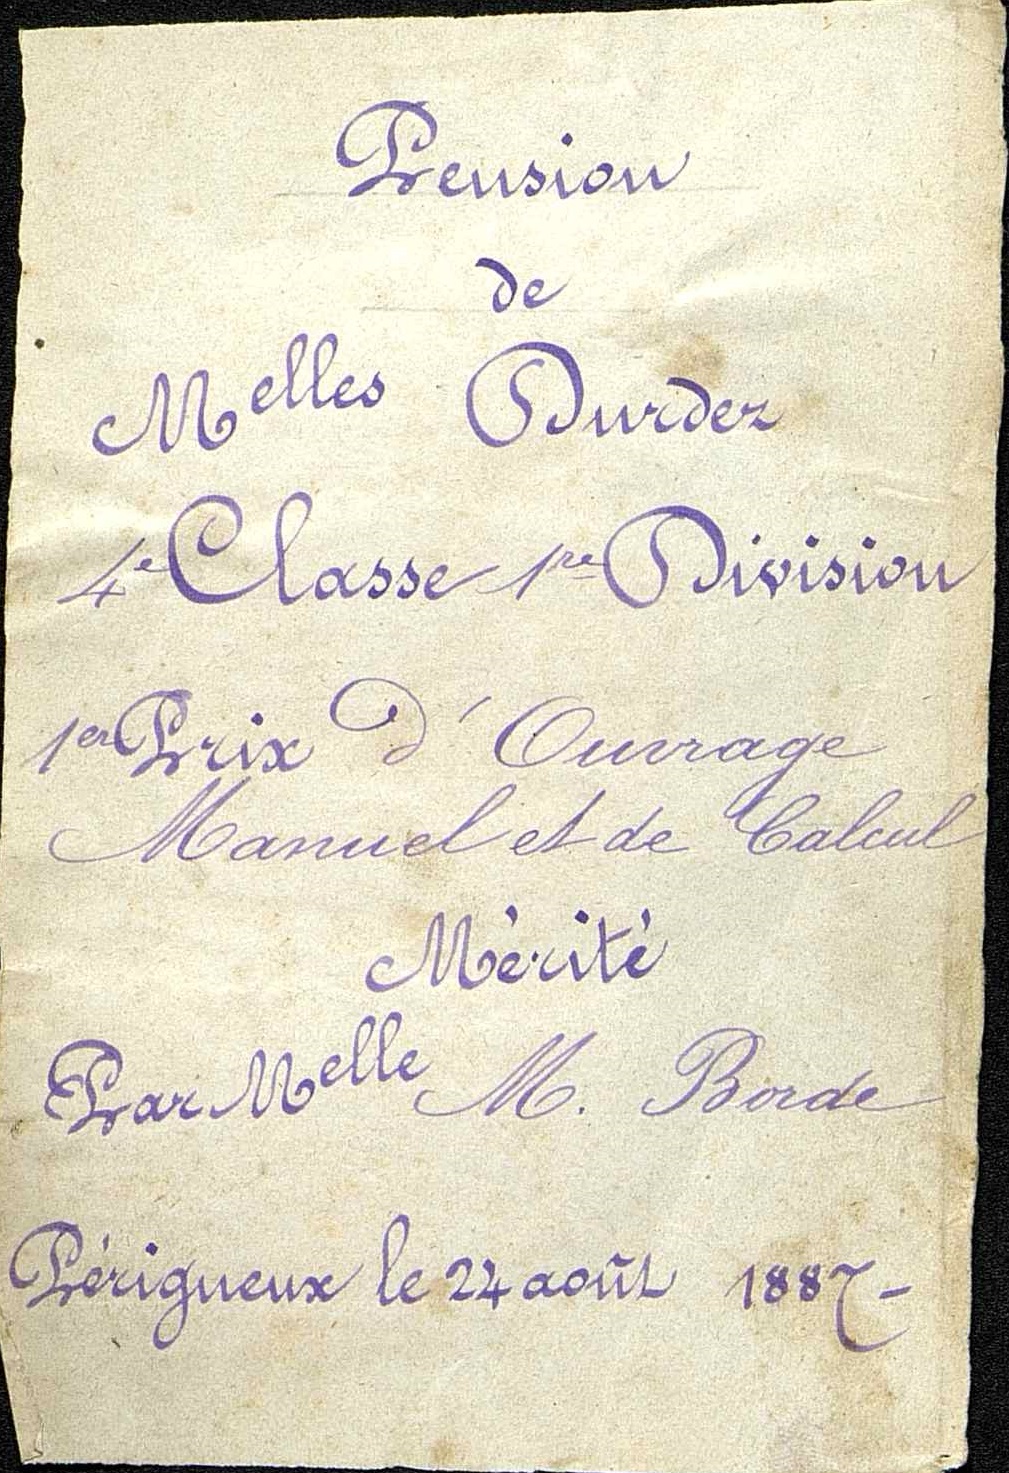 Pension
de
Melles Durdez
4e Classe 1re Division
1er Prix d'Ouvrage
Manuel et de Calcul
Mérité
Par Melle M. Borde
Périgueux le 24 août 1887-